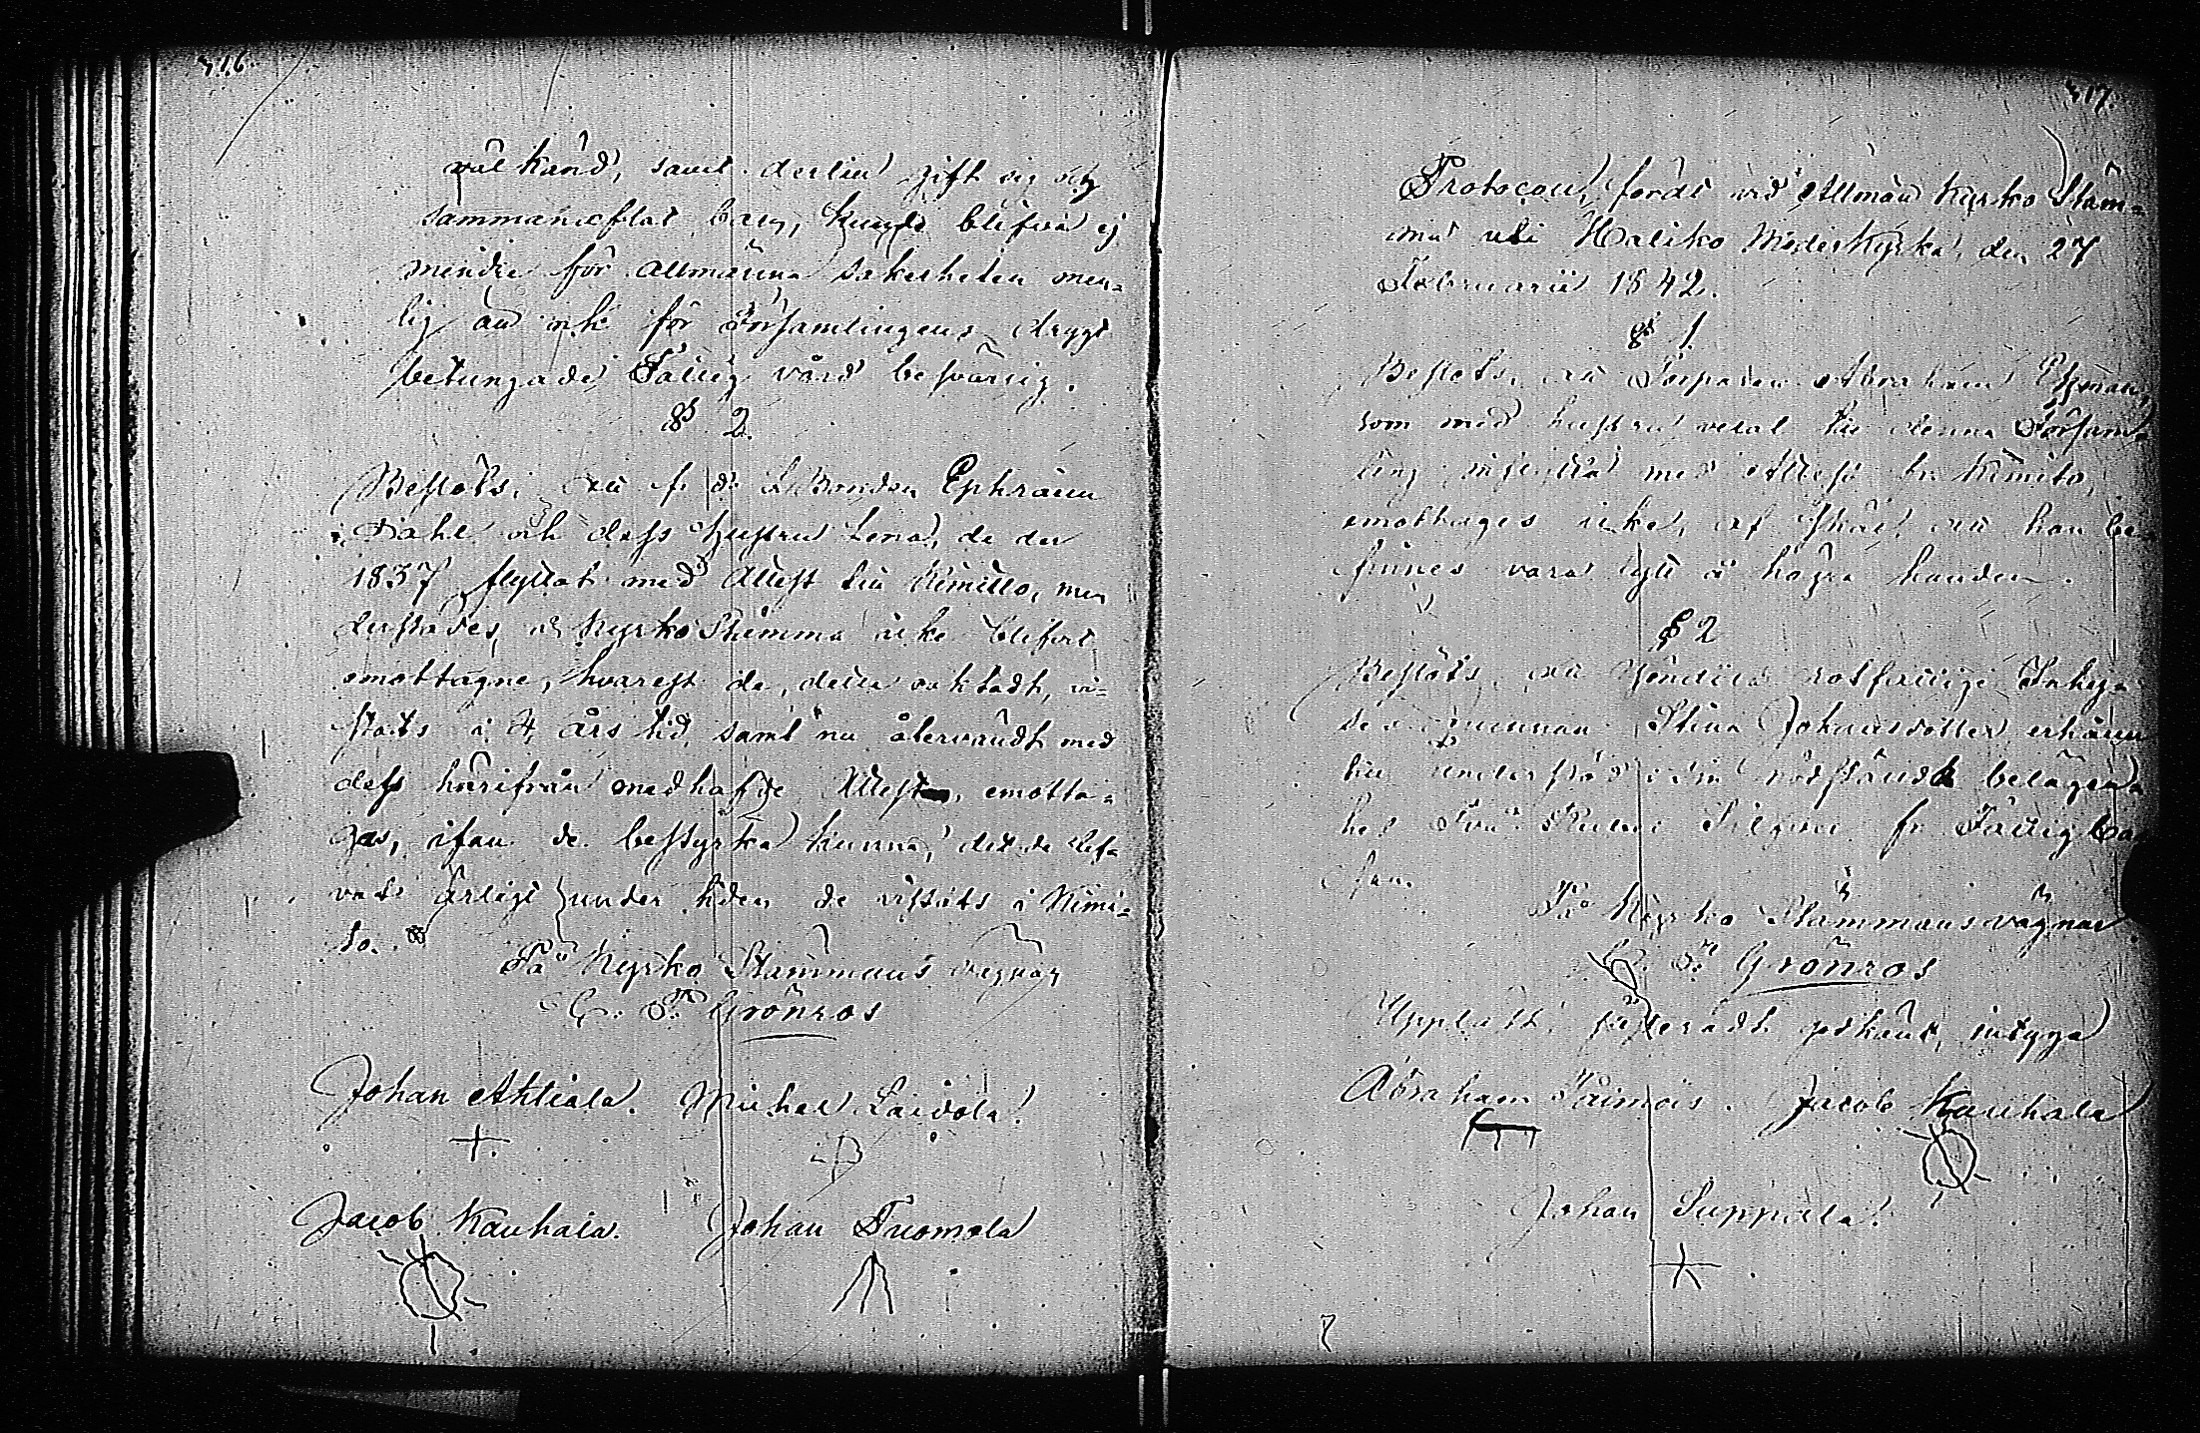 316.
väl känd, samt derlin gift sig och
sammanaflat barn, kunde blifva ej
mindre för allmänna säkerheten men-
lig än ock för Församlingens drygt
betungade Fattig vård besvärlig.
§ 2.
Beslöts, att f. d. Bonden Ephraim
Dahl och dess Hustru Lena, de der
1837 flyttat med Attest till Kimitto, men
derstädes, å Kyrko Stämma icke blifvit
emottagne, hvarest de, detta oaktadt, vi-
stats i 4 års tid samt nu återvändt med
dess härifrån medhafde Attest, emotta-
gas, ifall de bestyrka kunna, det de lef-
vat ärligt under tiden de vistats i Kimi-
to.
På Kyrko Stämmans vägnar
G. F. Grönroos
Johan Ahtiala. Michel Laidola.
Jacob Kauhala. Johan Tuomola
317.
Protocoll, fördt vid Allmän Kyrko Stäm-
ma uti Haliko Moderkyrka, den 27
Februarii 1842.
§ 1.
Beslöts, att Torparen Abraham
som med hustru velat till denna Försam-
ling inflytta med Attest fr. Kimito,
emottages icke, af skäl att han be-
finnes vara lytt å högra handen.
§ 2
Beslöts, att rotfattige Inhyse
Qvinnan Stina Johansdotter erhåller
till understöd i sin nödstäldt belägen
het Två Rubel Silfver fr. Fattig Cas
san.
På Kyrko Stämmans vägnar
G. F. Grönros
Uppläst, justeradt godkändt, intyga
Abraham Jacob Kauhala
Johan Suppala.